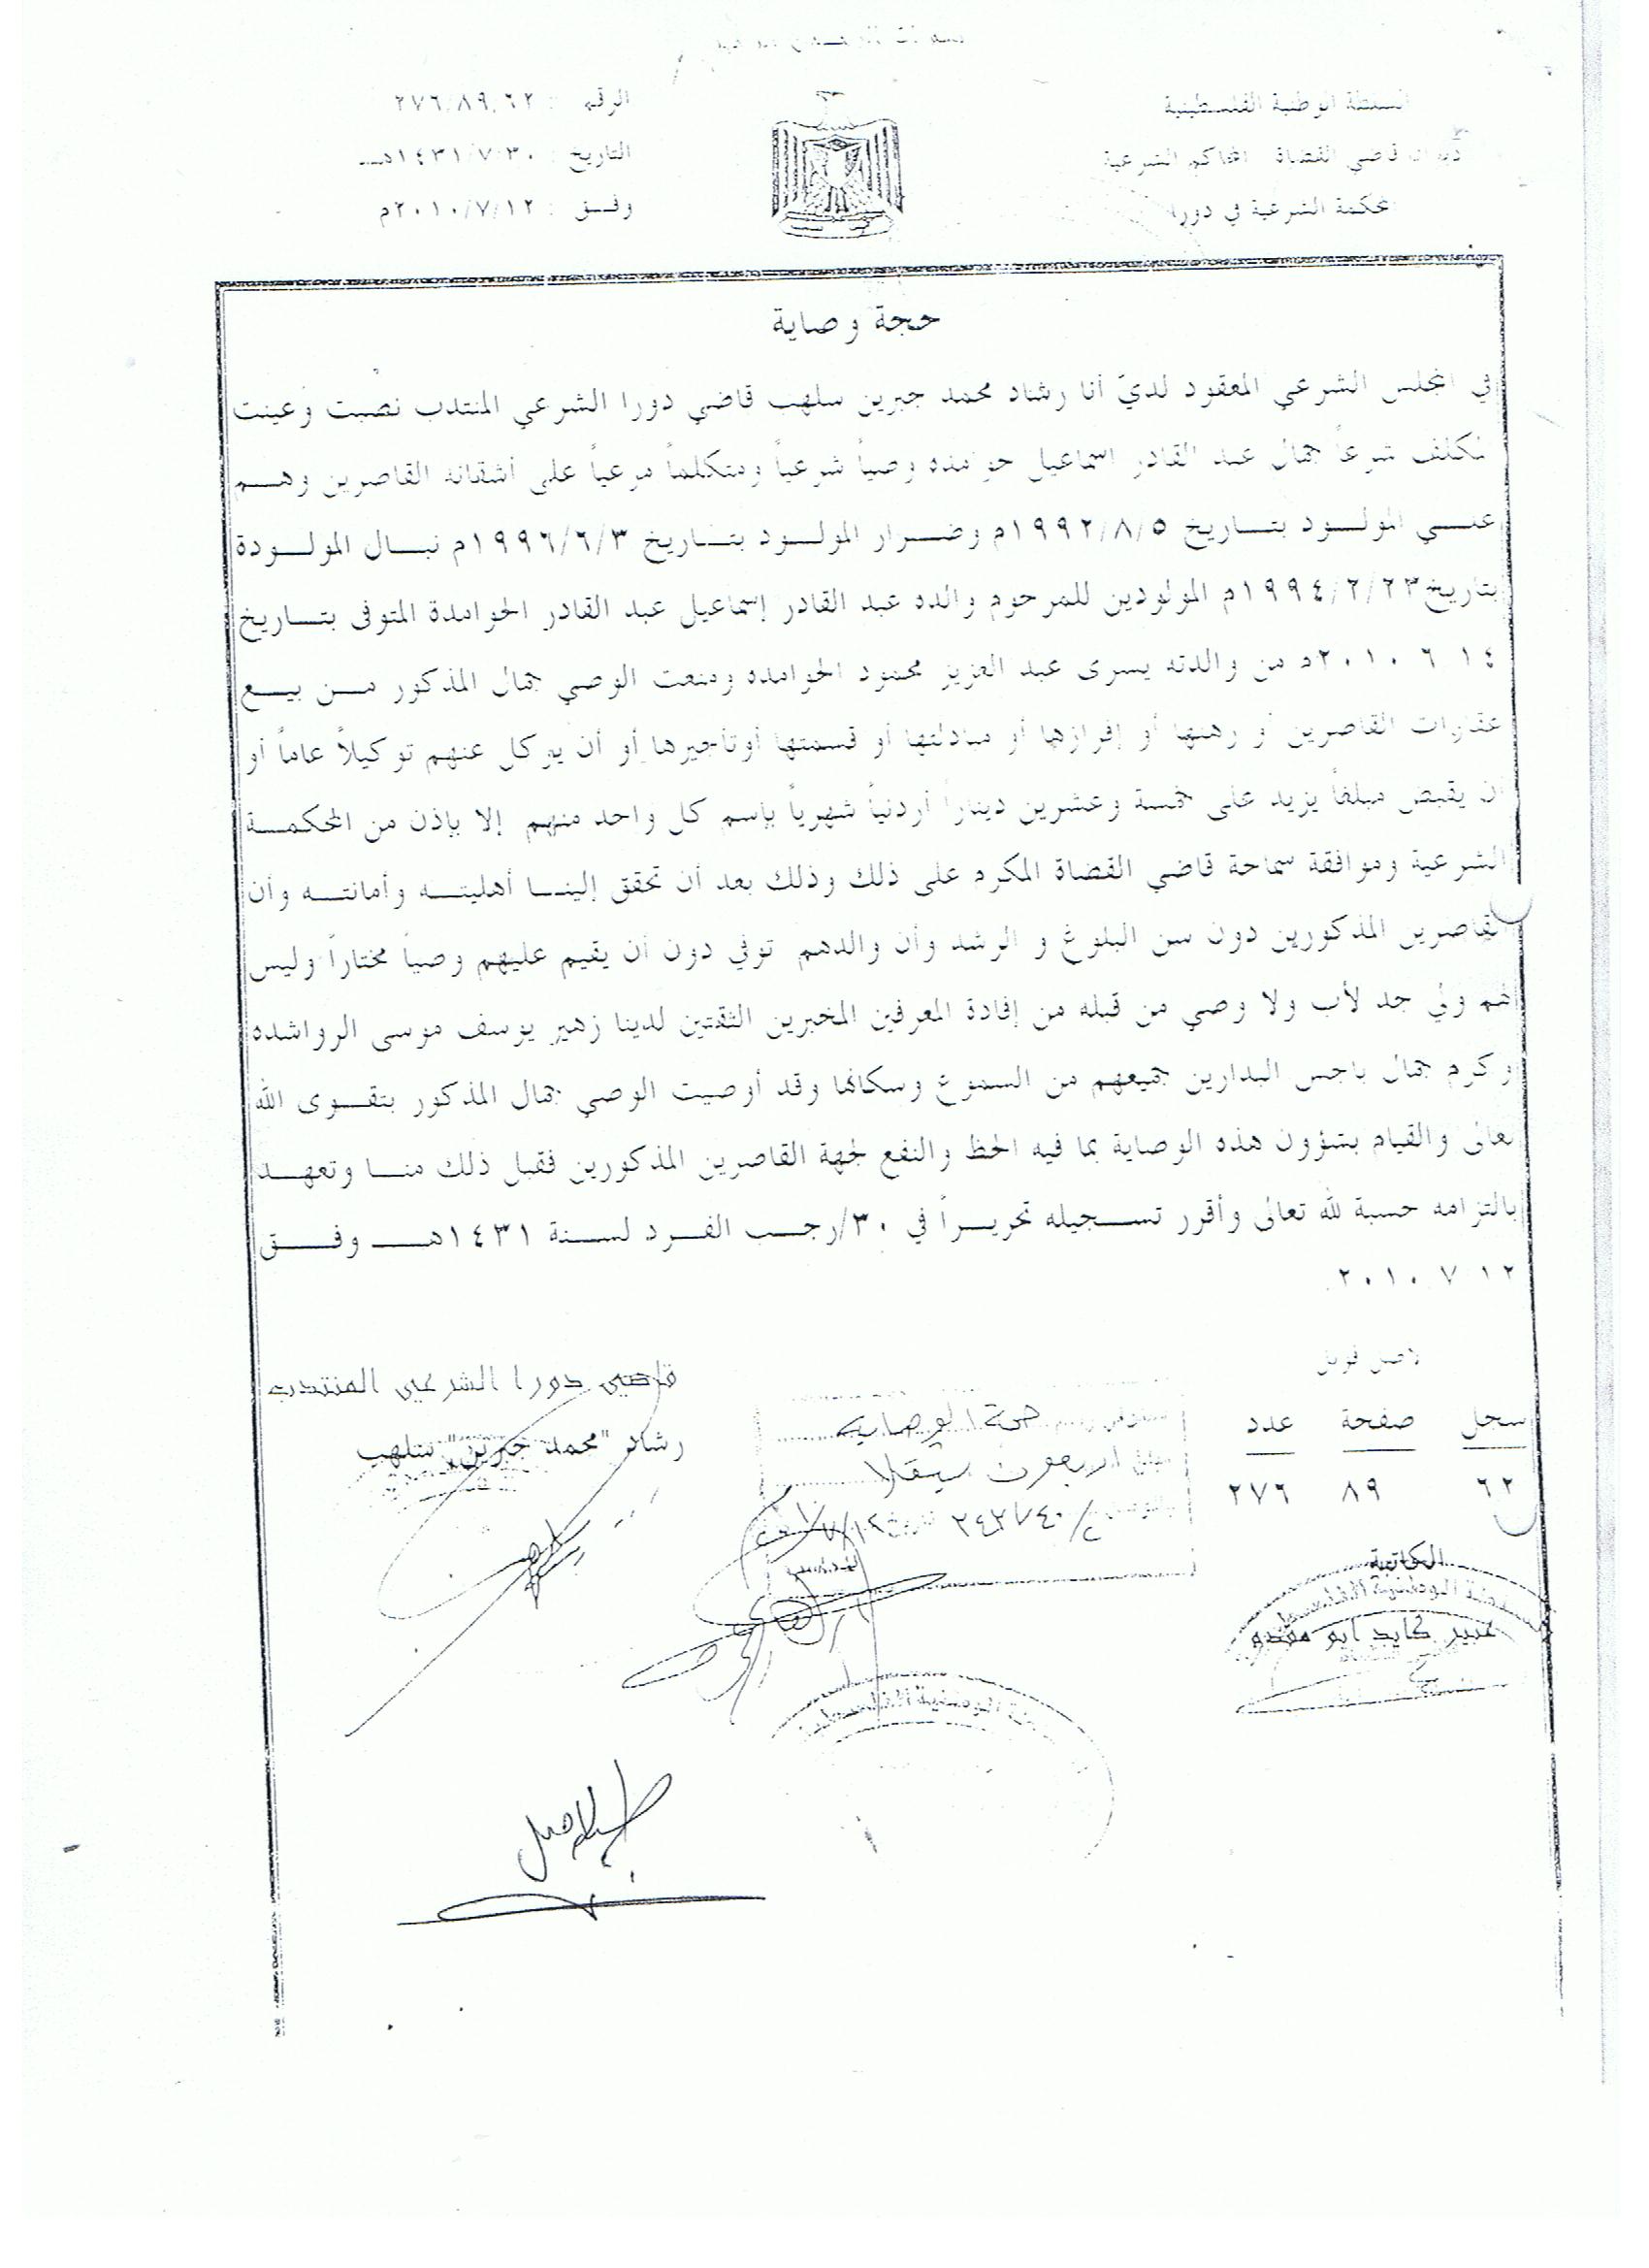 السلطة الوطنية الفلسطينية
ديوان قاضي القضاة المحاكم الشرعية
المحكمة الشرعية في دورا
الرقم : ٢٧٦/٨٩/٦٢
التاريخ : ١٤٣١/٧/٣٠هـ
وفق : ٢٠١٠/٧/١٢م
حجة وصاية
في المجلس الشرعي المعقود لديّ أنا رشاد محمد جبرين سلهب قاضي دورا الشرعي المنتدب نصبت وعينت
المكلف شرعاً جمال عبد القادر اسماعيل حوامده وصياً شرعياً ومتكلماً مرعياً على أشقائه القاصرين وهم
المولود بتاريخ ١٩٩٢/٨/٥م وضرار المولود بتاريخ ١٩٩٦/٦/٣م نبال المولودة
بتاريخ ١٩٩٤/٢/٢٣م المولودين للمرحوم والده عبد القادر إسماعيل عبد القادر الحوامدة المتوفى بتاريخ
١٤ ٦ ٢٠١٠م من والدته يسرى عبد العزيز محمود الحوامده ومنعت الوصي جمال المذكور من بيع
عقارات القاصرين أو رهنها أو إفرازها أو مبادلتها أو قسمتها أوتأجيرها أو أن يوكل عنهم توكيلاً عاماً أو
أن يقبض مبلغاً يزيد على خمسة وعشرين ديناراً أردنياً شهرياً بإسم كل واحد منهم إلا بإذن من المحكمة
الشرعية وموافقة سماحة قاضي القضاة المكرم على ذلك وذلك بعد أن تحقق إلينا أهليته وأمانته وأن
القاصرين المذكورين دون سن البلوغ و الرشد وأن والدهم توفي دون أن يقيم عليهم وصياً مختاراً وليس
لهم ولي جد لأب ولا وصي من قبله من إفادة المعرفين المخبرين الثقتين لدينا زهير يوسف موسى الرواشده
وكرم جمال باجس البدارين جميعهم من السموع وسكانها وقد أوصيت الوصي جمال المذكور بتقوى الله
تعالى والقيام بشؤون هذه الوصاية بما فيه الحظ والنفع لجهة القاصرين المذكورين فقبل ذلك منا وتعهد
بالتزامه حسبة لله تعالى وأقرر تسجيله تحريراً في ٣٠/رجب الفرد لسنة ١٤٣١هـ وفق
١٢ ٧ ٢٠١٠
سجل صفحة عدد
٦٢ ٨٩ ٢٧٦
حجة الوصاية
اربعون شيقلا
قاضي دورا الشرعي المنتدب
رشاد "محمد جبرين" سلهب
عبير كايد ابو مقدم